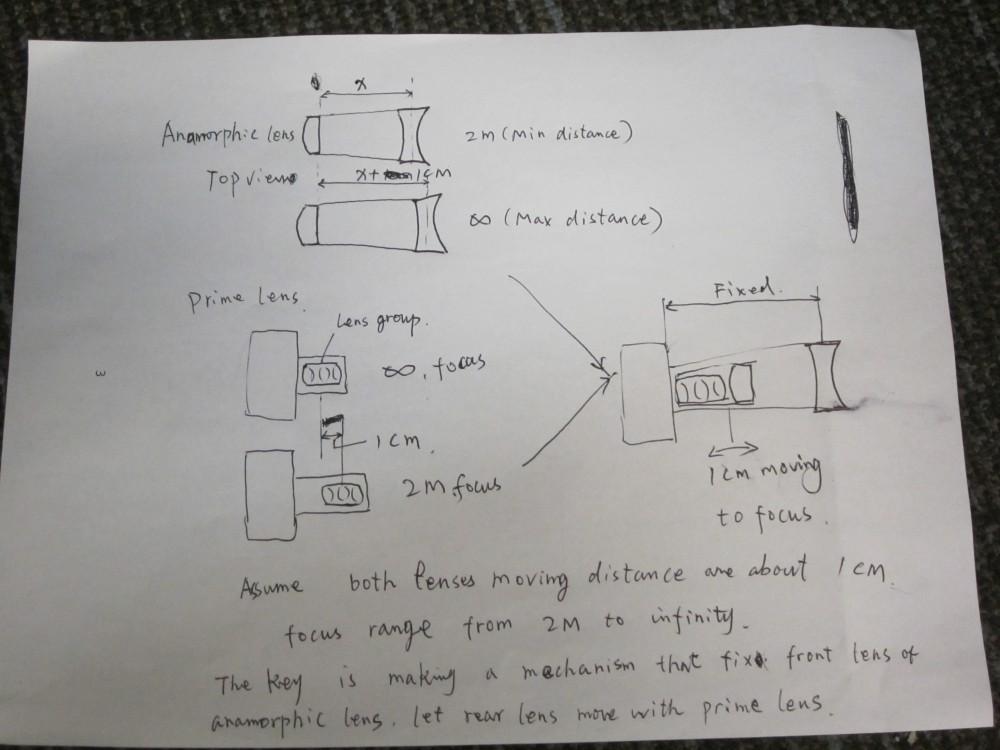 x
Anamorphic lens
2m (Min distance)
Top view
x+1cm
∞ (Max distance)
Prime lens
Lens group.
∞. focus
1cm.
2M. focus
Fixed.
1cm moving
to focus.
Assume both lenses moving distance are about 1cm.
focus range from 2M to infinity.
The key is making a mechanism that fix front lens of
anamorphic lens. let rear lens move with prime lens.